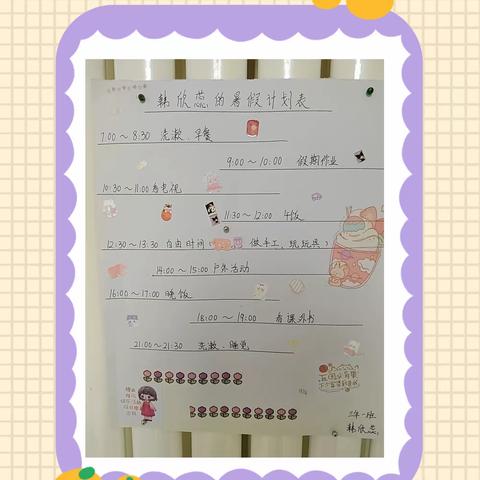 韩欣蕊的暑假计划表
7:00～8:30 洗漱、早餐
9:00～10:00 假期作业
10:30～11:00 看电视
11:30～12:00 午饭
12:30～13:30 自由时间(做手工、玩玩具)
14:00～15:00 户外活动
16:00～17:00 晚饭
18:00～19:00 看课外书
21:00～21:30 洗漱、睡觉
韩欣蕊